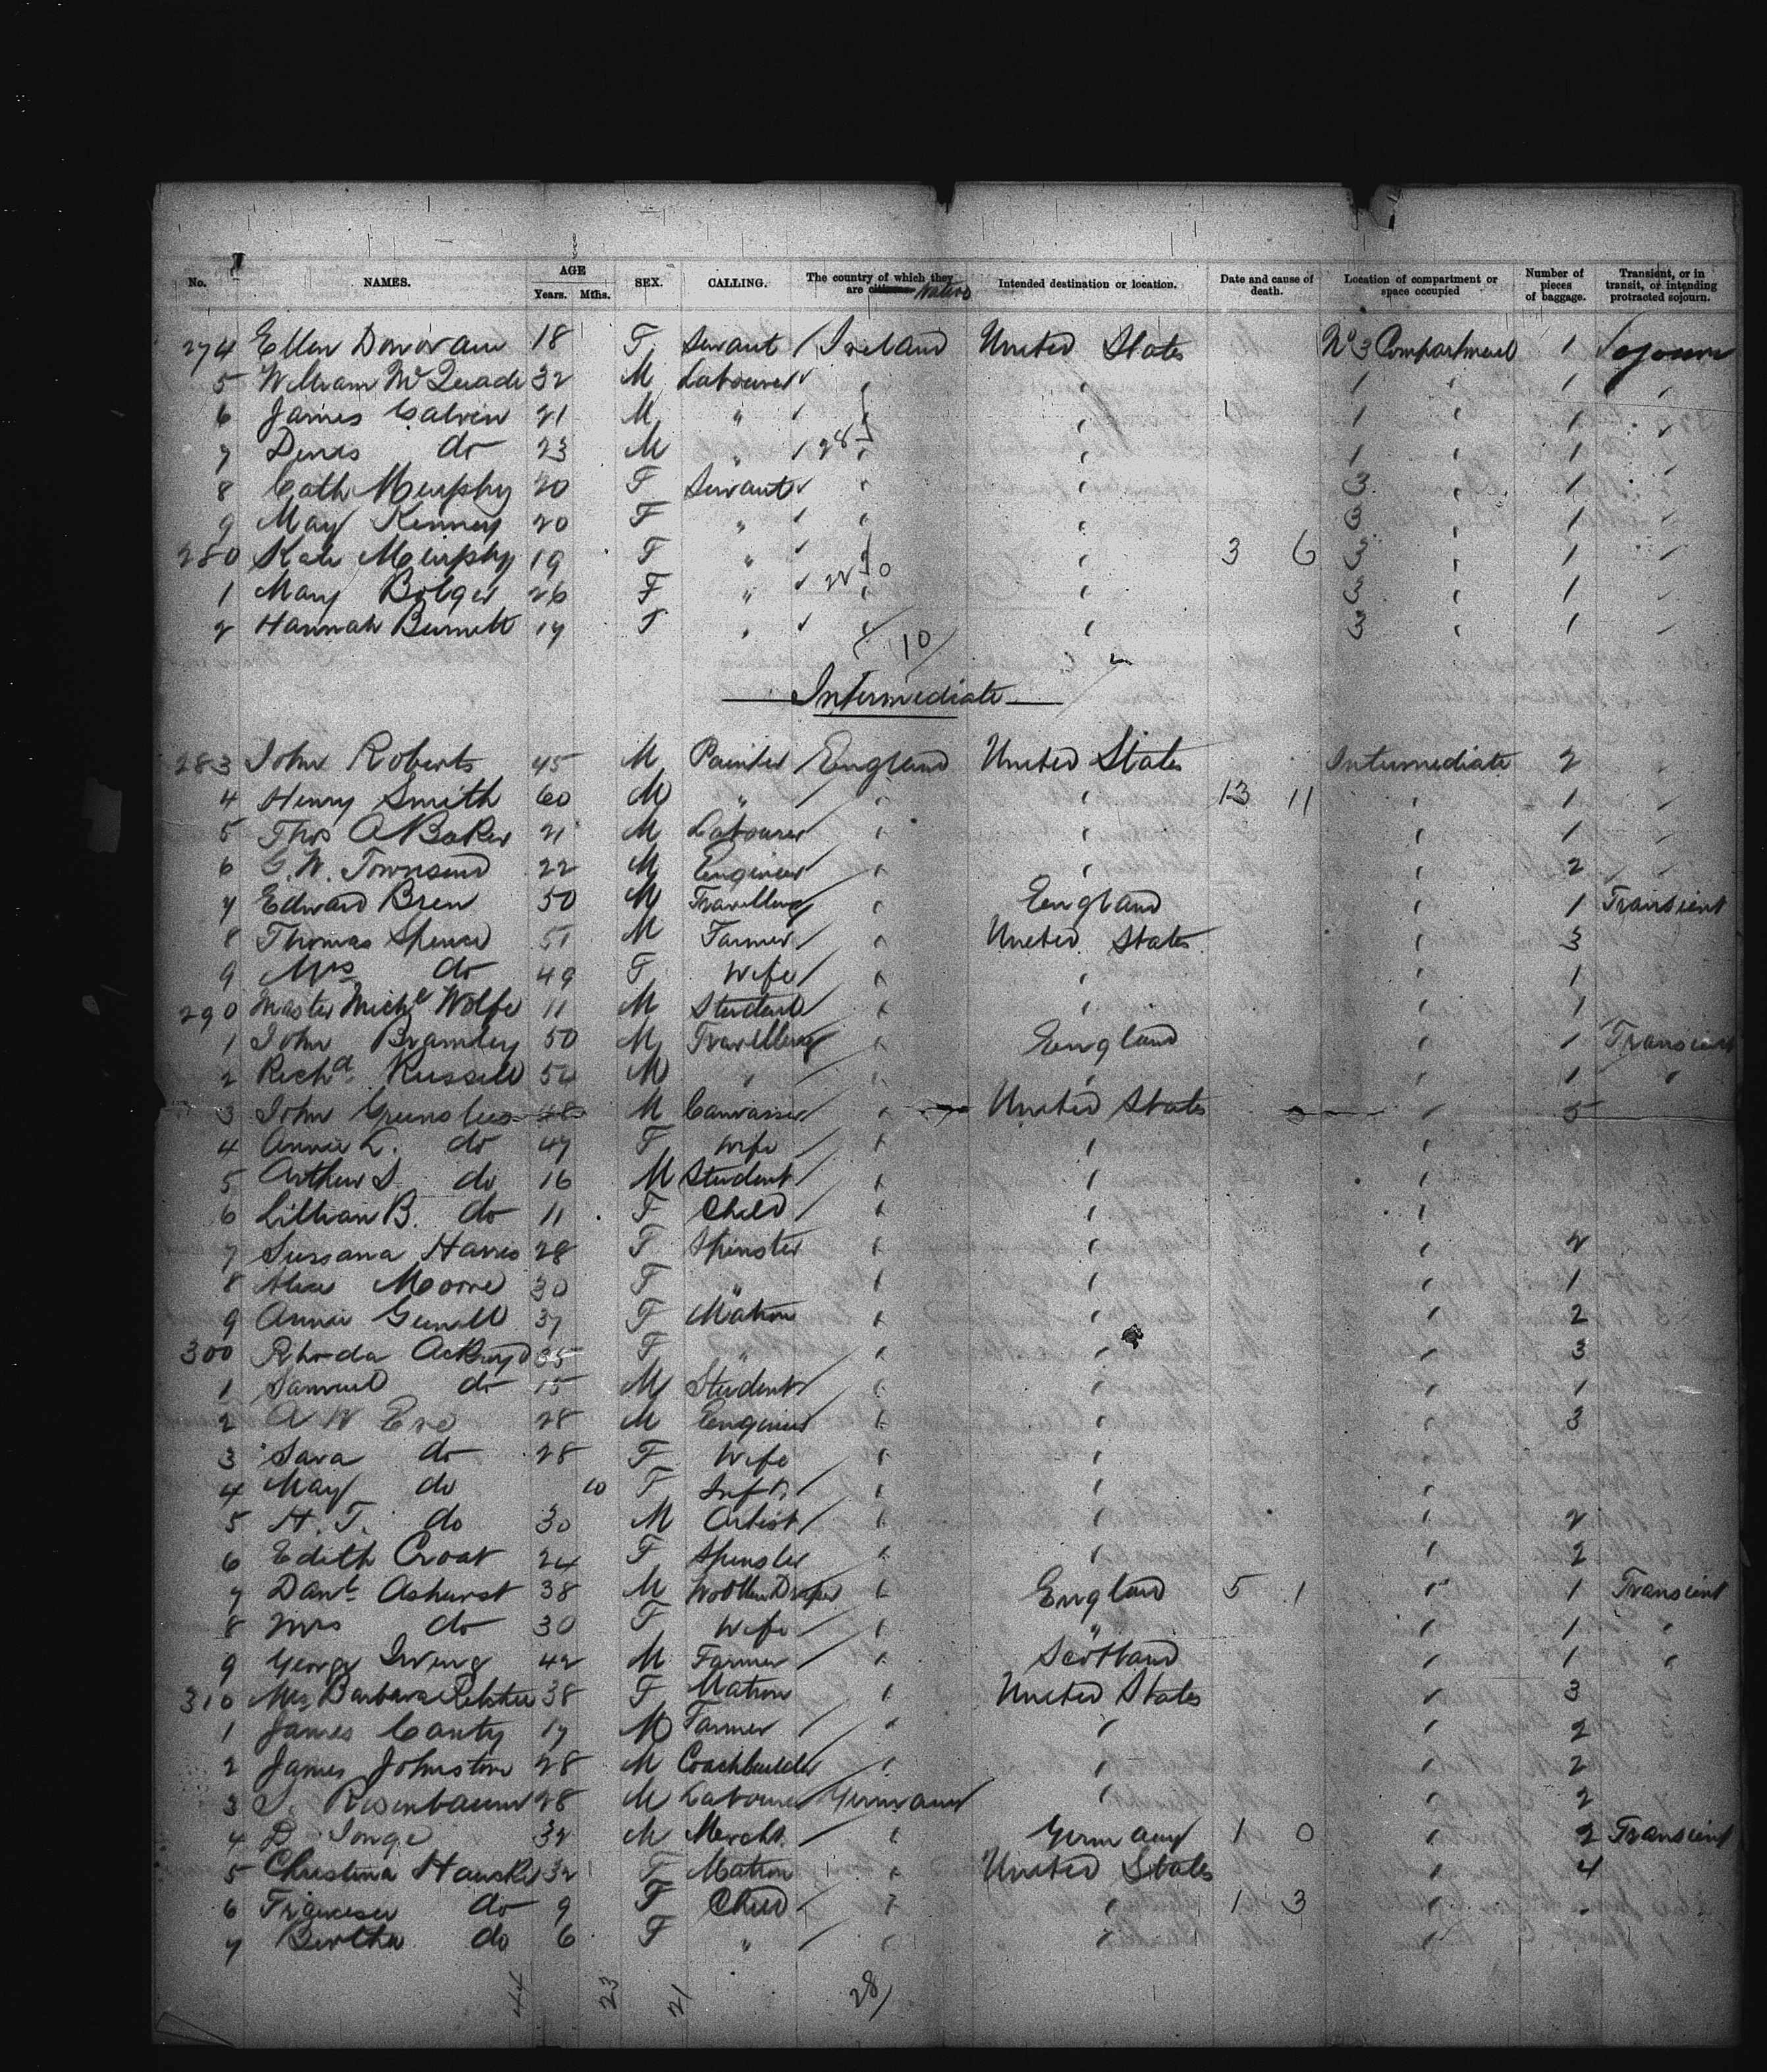 No. NAMES. AGE Years. Mths. SEX. CALLING. The country of which they are citizens Native Intended destination or location. Date and cause of death. Location of compartment or space occupied Number of pieces of baggage. Transient, or in transit, or intending protracted sojourn.
274 Ellen Donovan 18 F. Servant Ireland United States No 3 Compartment 1 Sojourn
5 William McQuade 32 M Labourer 1 1
6 James Calvin 21 M " 1 1
7 Denis do 23 M " 28 1 1
8 Cath Murphy 20 F Servant 3 1
9 May Kenney 20 F " 3 1
280 Kate Murphy 19 F " 3 6 3 1
1 Mary Bolger 26 F " 3 1
2 Hannah Burnett 19 F " 3 1
10
Intermediate
283 John Roberts 45 M Painter England United States Intermediate 2
4 Henry Smith 60 M " 13 11 1
5 Thos A Baker 21 M Labourer 1
6 G. W. Townsend 22 M Engineer 2
7 Edward Bren 50 M Travelling England 1 Transient
8 Thomas Spence 51 M Farmer United States 3
9 Mrs do 49 F Wife 1
290 Master Michl Wolfe 11 M Student 1
1 John Bramley 50 M Travelling England 1 Transient
2 Richd Russell 54 M " 1 "
3 John Greenslees 48 M Canvasser United States 5
4 Annie L. do 47 F Wife
5 Arthur S. do 16 M Student
6 Lillian B. do 11 F Child
7 Sussana Haves 28 F Spinster 2
8 Alice Moore 30 F " 1
9 Annie 37 F Matron 2
300 Rhoda Ackroyd 35 F " 3
1 Samuel do 15 M Student 1
2 A W Eve 28 M Engineer 3
3 Sara do 28 F Wife
4 May do 10 F Inft
5 H. T. do 30 M Artist 2
6 Edith Croat 24 F Spinster 2
7 Danl Ashurst 38 M Woollen Draper England 5 1 1 Transient
8 Mrs do 30 F Wife " 1 "
9 George Irving 42 M Farmer Scotland 1 "
310 Mrs Barbara 38 F Matron United States 3
1 James Canty 17 M Farmer 2
2 James Johnston 28 M Coachbuilder 2
3 Rosenbaum 28 M Labourer Germany 2
4 D Jonge 32 M Mercht. Germany 1 0 2 Transient
5 Christina Hauske 32 F Matron United States 4
6 do 9 F Child 1 3
7 Bertha do 6 F "
44 23 21 28